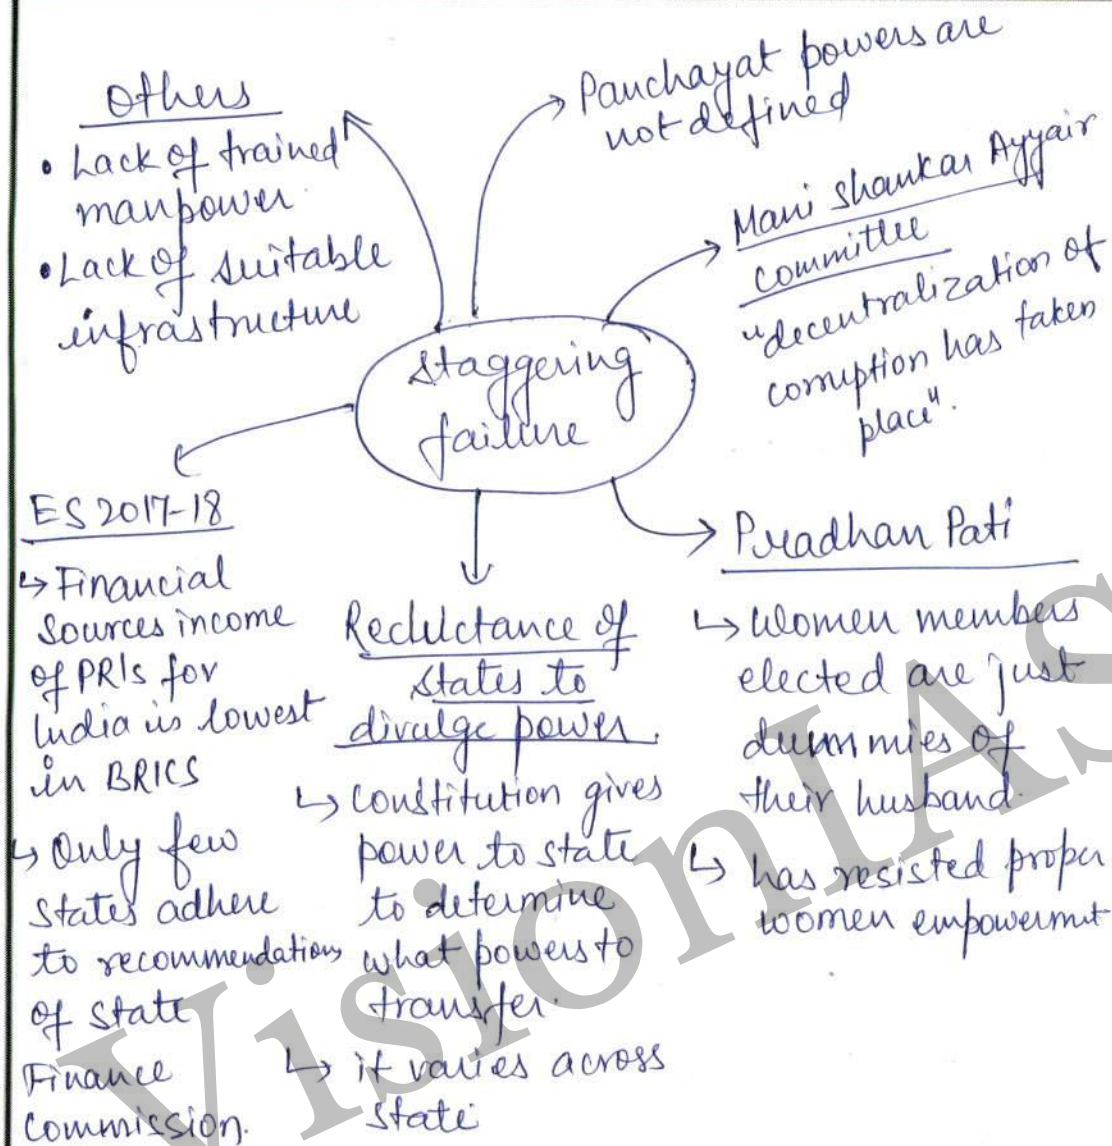 Others
• Lack of trained
manpower
• Lack of suitable
infrastructure
Panchayat powers are
not defined
Mani Shankar Ayyair
committee
"decentralization of
corruption has taken
place".
Staggering
failure
ES 2017-18
↳ Financial
sources income
of PRIs for
India is lowest
in BRICS
↳ Only few
states adhere
to recommendations
of state
Finance
Commission.
Recluctance of
states to
divulge power.
↳ Constitution gives
power to state
to determine
what powers to
transfer.
↳ it varies across
state
Pradhan Pati
↳ Women members
elected are just
dummies of
their husband.
↳ has resisted proper
women empowermt
VisionIAS